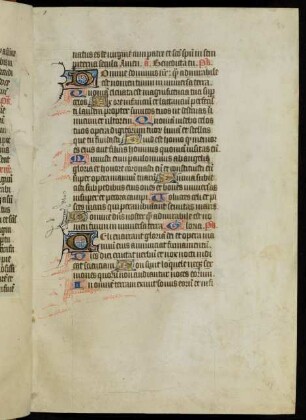 natus es de virgine cum patre et sco spu in sem
piterna secula Amen. a. Benedicta tu. ps
Domine dominus nr q admirabile
est nomen tuum in universa terra
Quoniam elevata est magnificentia tua sup
celos Ex ore infantium et lactantium perfecis
ti laudem propter inimicos tuos ut destruas in
imicum et ultorem Quoniam videbo celos
tuos opera digitorum tuorum lunam et stellas
que tu fundasti Quid est homo q memor
es eius aut filius hominis quoniam visitas eum
Minuisti eum paulominus ab angelis
gloria et honore coronasti eum et constituisti eum
super opera manuum tuarum Omnia subie
cisti sub pedibus eius oves et boves universas
insuper et pecora campi Volucres celi et pi
sces maris qui perambulant semitas maris
Domine dns noster q admirabile est no
men tuum in universa terra Gloria. ps
Celi enarrant gloriam dei et opera ma
nuum eius annunciat firmamentum
Dies diei eructat verbum et nox nocti indi
cat scientiam Non sunt loquele neqz ser
mones quorum non audiantur voces eorum
In omnem terram exivit sonus eorum et in fi